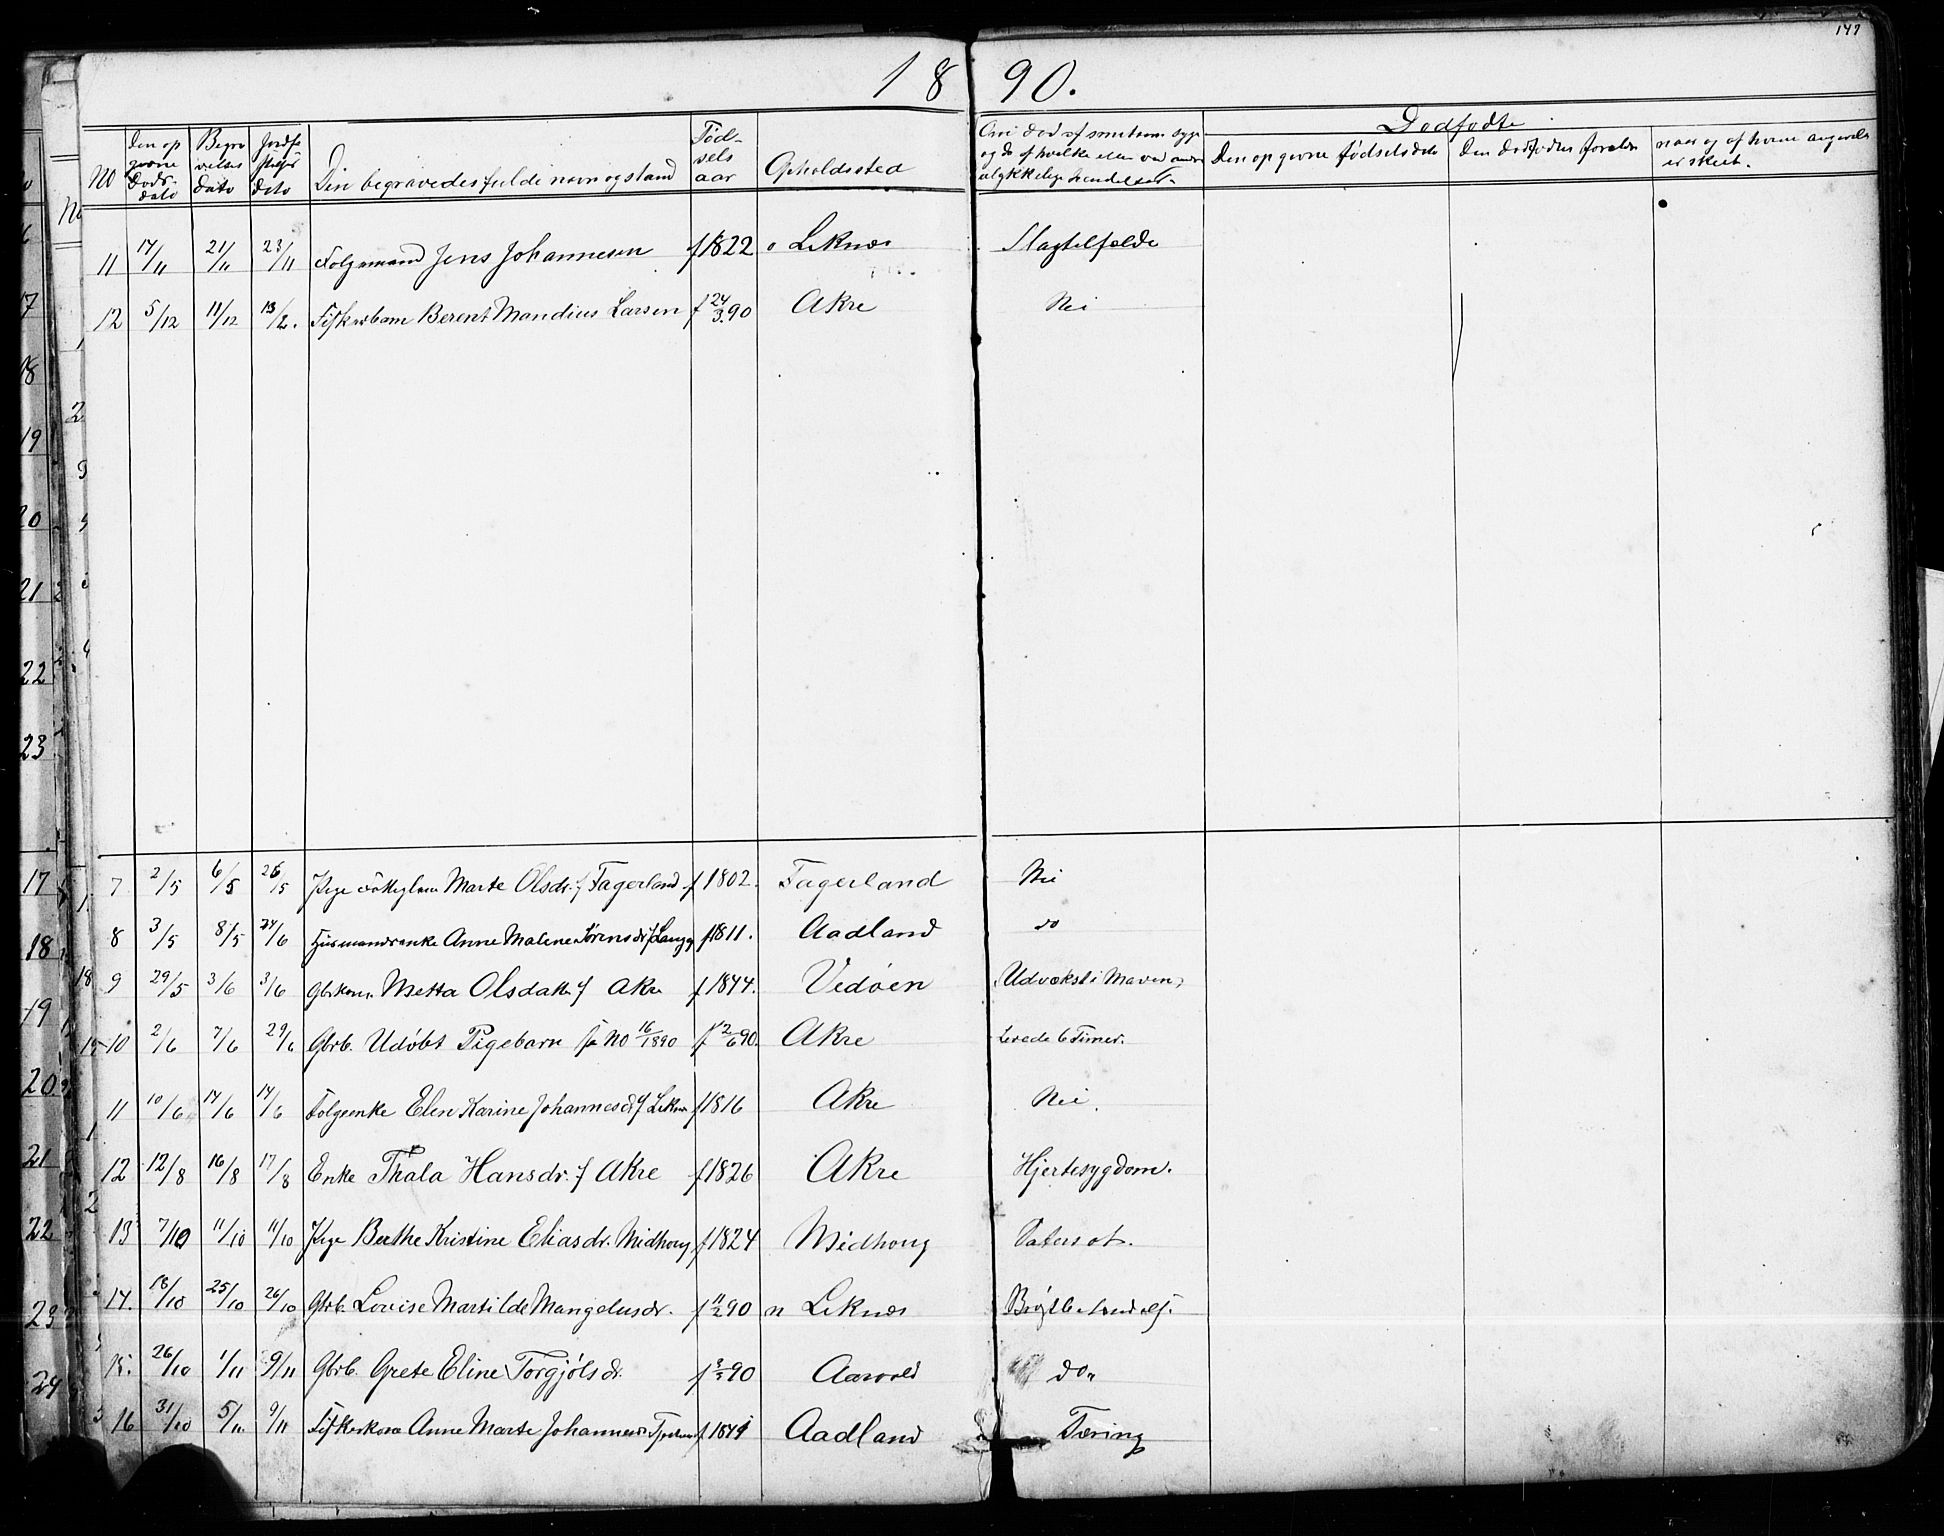 147
1890.
No
Den op
givne
Døds-
dato
Begra
velses
dato
Jordfæ
dato
Den begravedes fulde navn og stand
Fød-
sels
aar
Opholdssted
Om død af smitsom syge
og da af hvilke eller ved andre
ulykkelige hendelser.
Dødfødte
Den opgivne fødselsdato
Den dødfødtes forældre
naar og af hvem angivelse
er skeet.
11 17/11 21/11 23/11 Folgemand Jens Johannesen f 1822 Leknes Slagtilfælde
12 5/12 11/12 13/12. Fiskerbarn Berent Mandius Larsen f 24/3 90 Akre Nei
7 2/5 6/5 26/5 Pige Marte Olsdr. f Fagerland f 1802. Fagerland Nei
8 3/5 8/5 24/6 Husmandsenke Anne Malene Sørensdr f 1811. Aadland do
9 29/5 3/6 3/6 Gbrkone Metta Olsdatter f Akre f 1844. Vedøen Udvækst i Maven
10 2/6 7/6 29/6 Gbrb. Udøbt Pigebarn No 16/1890 f 2/6 90. Akre Levede 6 Timer.
11 10/6 14/6 14/6 Folgeenke Elen Karine Johannesd f Leknes f 1816 Akre Nei
12 12/8 16/8 17/8 Enke Thala Hansdr. f Akre f 1826 Akre Hjertesygdom.
13 7/10 11/10 11/10 Pige Berthe Kristine Eliasdr. Midhoug f 1824 Midhoug
14. 18/10 25/10 26/10 Gbrb. Lovise Martilde Mangelusdr. f 11/2 90 n Leknes
15. 26/10 1/11 9/11 Gbrb. Grete Eline Torgjølsdr. 90 Aarvold do
16 31/10 5/11 9/11 Fiskerkone Anne Marte Johannesd Aadland Tæring